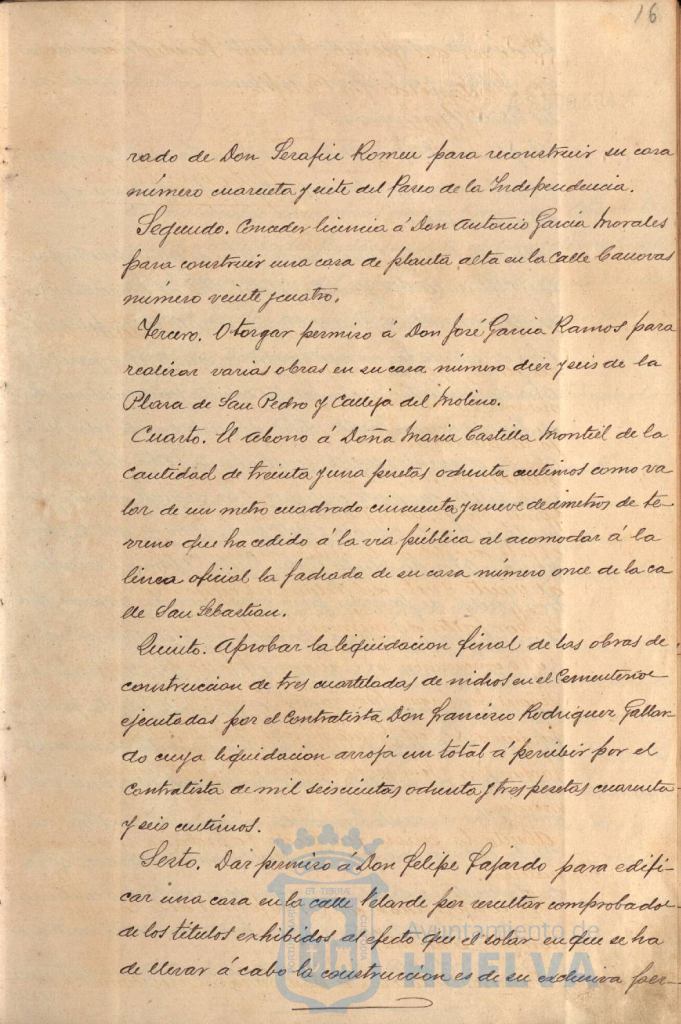 16
rado de Don Serafin Romeu para reconstruir su casa
número cuarenta y siete del Paseo de la Independencia.
Segundo. Conceder licencia á Don Antonio Garcia Morales
para construir una casa de planta alta en la calle Canovas
número veinte y cuatro.
Tercero. Otorgar permiso á Don José Garcia Ramos para
realizar varias obras en su casa número diez y seis de la
Plaza de San Pedro y Calleja del Molino.
Cuarto. El abono á Doña Maria Castilla Montiel de la
cantidad de treinta y una pesetas ochenta centimos como va
lor de un metro cuadrado cincuenta y nueve decimetros de te-
rreno que ha cedido á la via pública al acomodar á la
linea oficial la fachada de su casa número once de la ca
de San Sebastian.
Quinto. Aprobar la liquidacion final de las obras de
construccion de tres cuarteladas de nichos en el Cementerio
ejecutadas por el Contratista Don Francisco Rodriguez Gallar
do cuya liquidacion arroja un total á percibir por el
contratista de mil seiscientas ochenta y tres pesetas cuarenta
y seis centimos.
Sexto. Dar permiso á Don Felipe Fajardo para edifi-
car una casa en la calle Velarde por resultar comprobado
de los titulos exhibidos al efecto que el solar en que se ha
de llevar á cabo la construccion es de su exclusiva per-
Ayuntamiento de
HUELVA